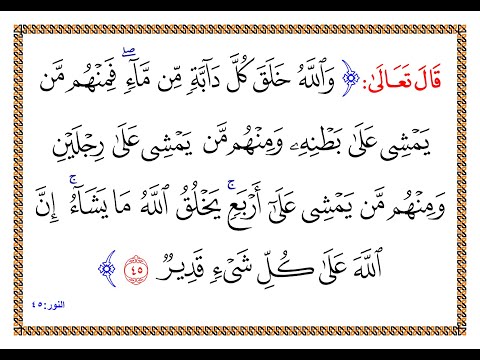 قَالَ تَعَالَىٰ: ﴿ وَٱللَّهُ خَلَقَ كُلَّ دَآبَّةٖ مِّن مَّآءٖۖ فَمِنۡهُم مَّن
يَمۡشِي عَلَىٰ بَطۡنِهِۦ وَمِنۡهُم مَّن يَمۡشِي عَلَىٰ رِجۡلَيۡنِ
وَمِنۡهُم مَّن يَمۡشِي عَلَىٰٓ أَرۡبَعٖۚ يَخۡلُقُ ٱللَّهُ مَا يَشَآءُۚ إِنَّ
ٱللَّهَ عَلَىٰ كُلِّ شَيۡءٖ قَدِيرٞ ٤٥ ﴾
النور: ٤٥